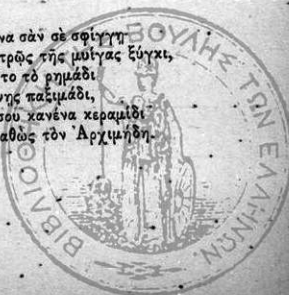 να σὰν σὲ σφίγγῃ
τρῶς τῆς μυίγας ξύγκι,
το τὸ ρημάδι
ης παξιμάδι,
σου κανένα κεραμίδι
αθὼς τὸν Ἀρχιμήδη.
ΒΙΒΛΙΟΘΗΚΗ ΒΟΥΛΗΣ ΤΩΝ ΕΛΛΗΝΩΝ